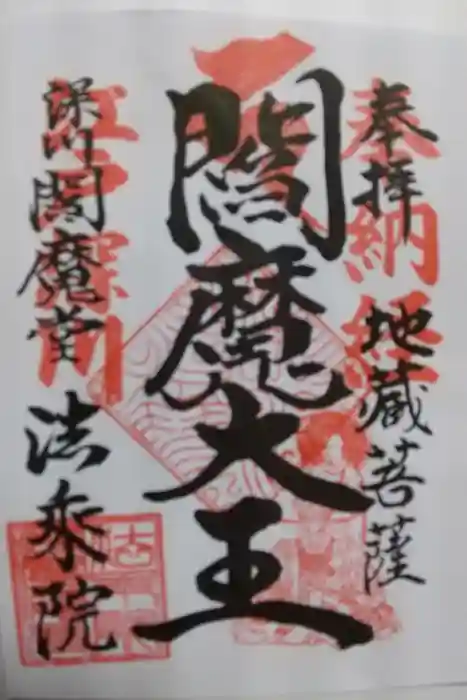 奉拝 地蔵菩薩
奉納経
閻魔大王
江戸深川
深川閻魔堂 法乗院